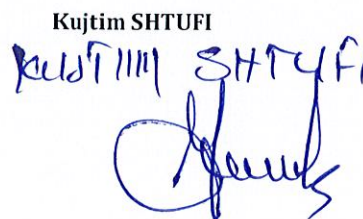 Kujtim SHTUFI
KUJTIM SHTUFI